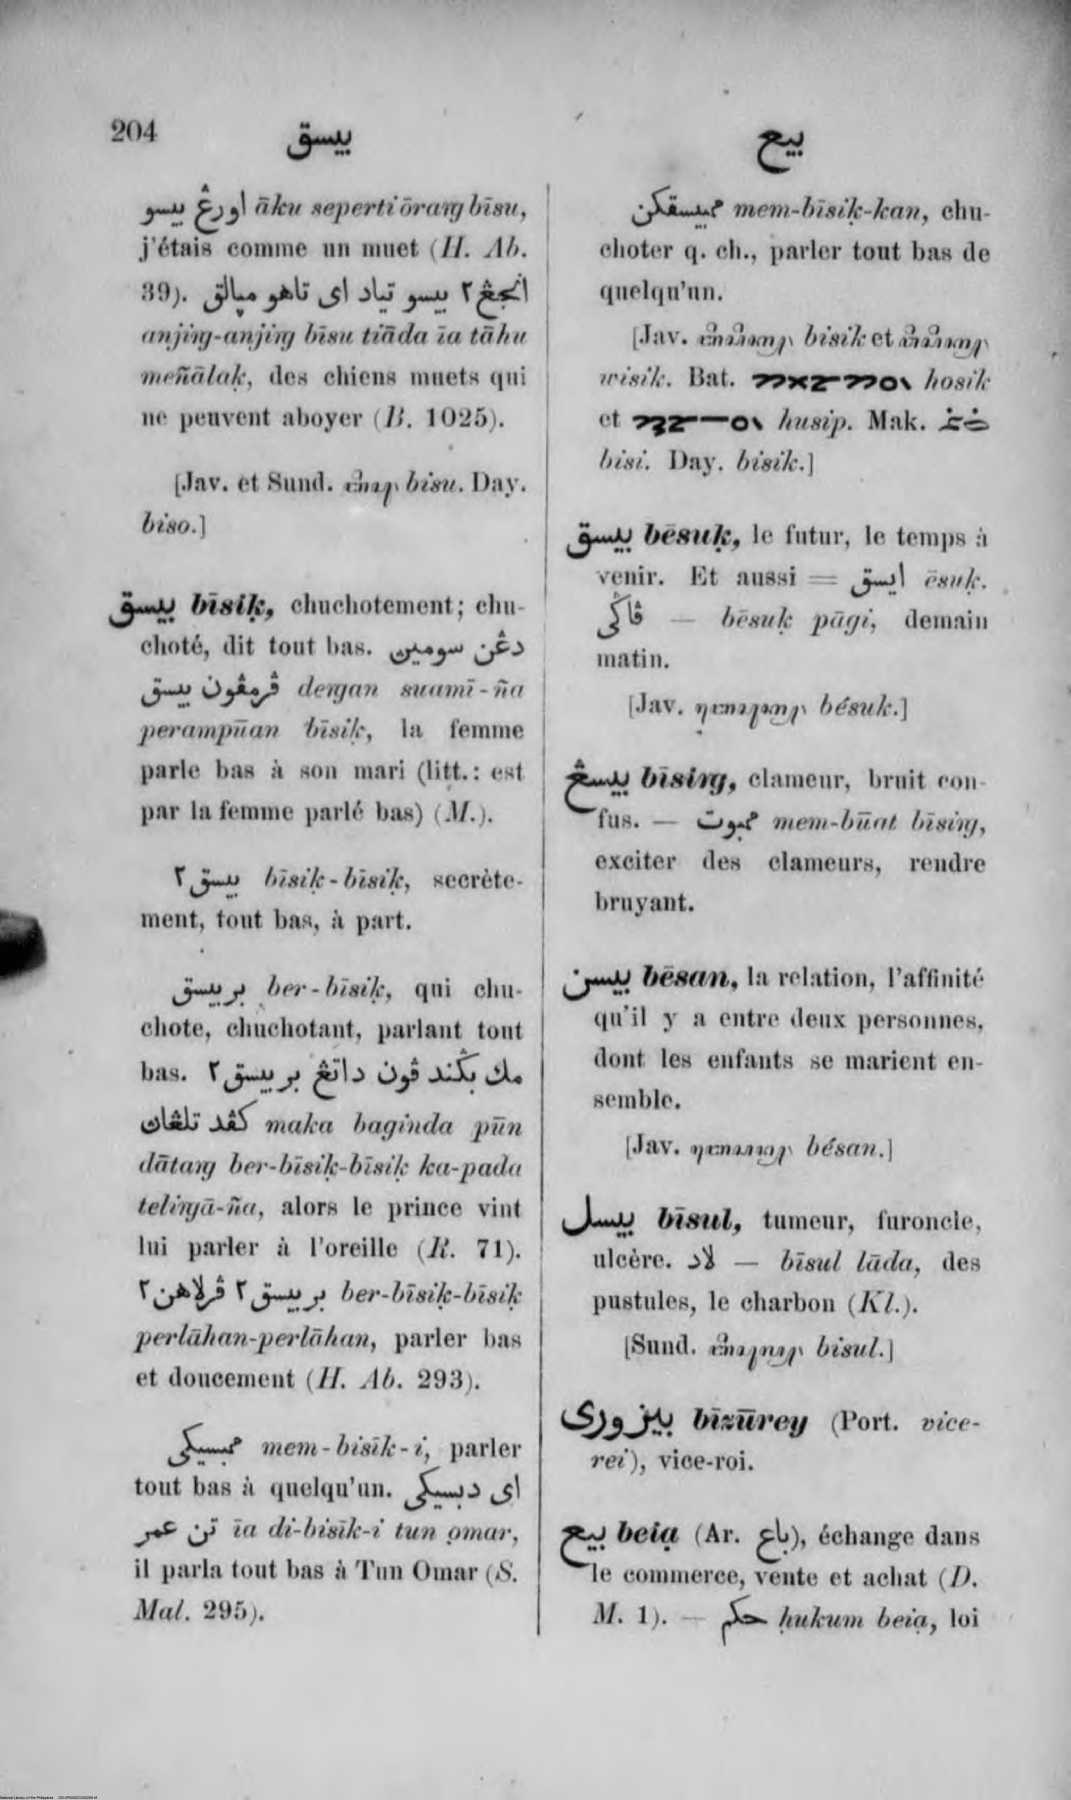 204
بيسق
بيع
اورڠ بيسو āku seperti ōrang bīsu,
j'étais comme un muet (H. Ab.
39). انجڠ٢ بيسو تياد اى تاهو مپالق
anjing-anjing bīsu tiāda īa tāhu
meñālaḳ, des chiens muets qui
ne peuvent aboyer (B. 1025).
[Jav. et Sund. bisu. Day.
biso.]
بيسق bīsiḳ, chuchotement; chu-
choté, dit tout bas. دڠن سومين
ڤرمڤون بيسق dengan suamī-ña
perampūan bīsiḳ, la femme
parle bas à son mari (litt.: est
par la femme parlé bas) (M.).
بيسق٢ bīsiḳ-bīsiḳ, secrète-
ment, tout bas, à part.
بربيسق ber-bīsiḳ, qui chu-
chote, chuchotant, parlant tout
bas. مك بڬند ڤون داتڠ بربيسق٢
كڤد تلڠان maka baginda pūn
dātang ber-bīsiḳ-bīsiḳ ka-pada
telingā-ña, alors le prince vint
lui parler à l'oreille (R. 71).
بربيسق٢ ڤرلاهن٢ ber-bīsiḳ-bīsiḳ
perlāhan-perlāhan, parler bas
et doucement (H. Ab. 293).
ممبسيكى mem-bisīk-i, parler
tout bas à quelqu'un. اى دبسيكى
تن عمر īa di-bisīk-i tun ọmar,
il parla tout bas à Tun Omar (S.
Mal. 295).
ممبيسقكن mem-bīsiḳ-kan, chu-
choter q. ch., parler tout bas de
quelqu'un.
[Jav. bisik et
wisik. Bat. hosik
et husip. Mak.
bisi. Day. bisik.]
بيسق bēsuḳ, le futur, le temps à
venir. Et aussi = ايسق ēsuḳ.
ڤاڬى — bēsuḳ pāgi, demain
matin.
[Jav. bésuk.]
بيسڠ bīsing, clameur, bruit con-
fus. — ممبوت mem-būat bīsing,
exciter des clameurs, rendre
bruyant.
بيسن bēsan, la relation, l'affinité
qu'il y a entre deux personnes,
dont les enfants se marient en-
semble.
[Jav. bésan.]
بيسل bīsul, tumeur, furoncle,
ulcère. لاد — bīsul lāda, des
pustules, le charbon (Kl.).
[Sund. bisul.]
بيزورى bīzūrey (Port. vice-
rei), vice-roi.
بيع beiạ (Ar. باع), échange dans
le commerce, vente et achat (D.
M. 1). — حكم ḥukum beiạ, loi